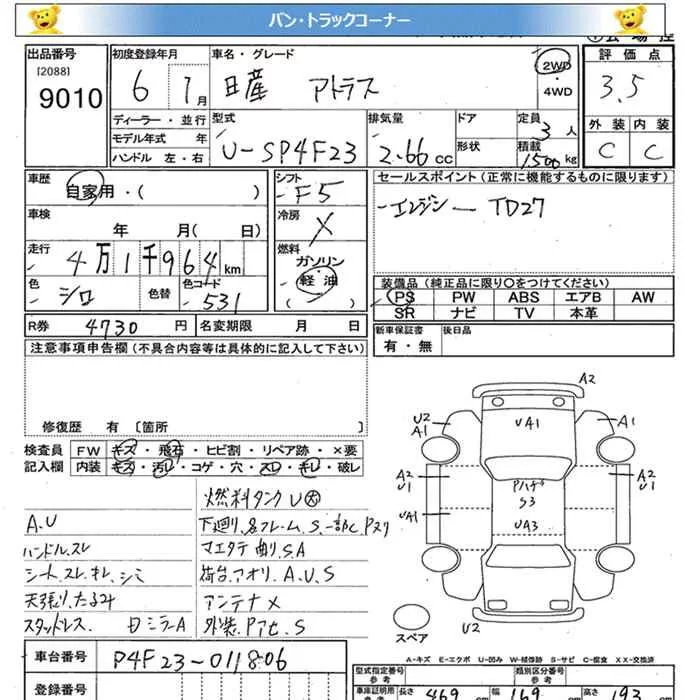 バン・トラックコーナー
出品番号 初度登録年月 車名・グレード 2WD ・ 4WD 評価点
[2088] 9010 6 7月 日産 アトラス 3.5
ディーラー・並行 型式 排気量 ドア 定員 3人 外装 内装
モデル年式 年 形状 積載
ハンドル 左・右 U-SP4F23 2.66 cc 1500kg C C
車歴 自家用・( ) シフト F5 セールスポイント(正常に機能するものに限ります)
車検 年 月( 日) 冷房 X エンジン ー TD27
走行 4万1千964km 燃料 ガソリン 軽油 ( )
色 シロ 色替 色コード 531
装備品(純正品に限り○をつけてください)
PS PW ABS エアB AW
SR ナビ TV 本革
R券 4730円 名変期限 月 日
新車保証書 後日品
有・無
注意事項申告欄(不具合内容等は具体的に記入して下さい)
修復歴 有 〔箇所 〕
検査員 FW キズ・飛石・ヒビ割・リペア跡・×要
記入欄 内装 キズ・汚レ・コゲ・穴・スレ・キレ・破レ
燃料タンクU大
A.U 下廻り、各フレーム、S、一部C、Pヌリ
ハンドルスレ マエタテ曲り、S.A
シート、スレ、キレ、シミ 荷台、アオリ、A、U、S
天張り、たるみ アンテナX
スタッドレス 日ミラーA 外装、Pアセ、S
A2
U2 A1 UA1 A1
A2 U1 Pハゲ S3 A2 U1
UA1 UA3
U2
スペア
A-キズ E-エクボ U-凹み W-補修跡 S-サビ C-腐食 XX-交換済
車台番号 P4F23-011806
登録番号
型式指定番号 参考 類別区分番号 参考
車庫証明用 参考 長さ 469 cm 幅 169 cm 高さ 193 cm